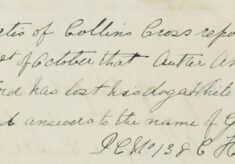 of Collins Cross repo
of October that
has lost his dog a white
answers to the name of G
P.C. No 138 E H